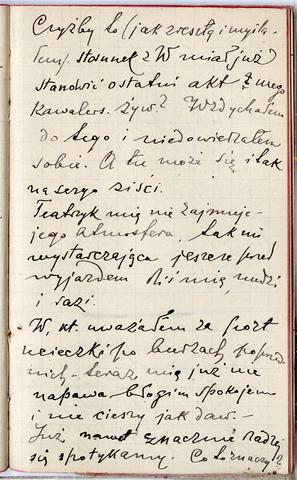 Czyżby to (jak zresztą i myśla-
łem) stosunek z W miał już
stanowić ostatni akt mego
kawalers. żyw.? Wzdychałem
do tego i niedowierzałem
sobie. A tu może się i tak
na seryo ziści.
Teatryk mię nie zajmuje -
jego atmosfera, tak mi
wystarczająca jeszcze przed
wyjazdem dziś mię nudzi
i razi.
W, kt. uważałem za port
ucieczki po burzach poprzed-
nich - teraz mię już nie
napawa błogim spokojem
i nie cieszy jak daw. -
Już nawet znacznie rzadziej
się spotykamy. Co to znaczy?